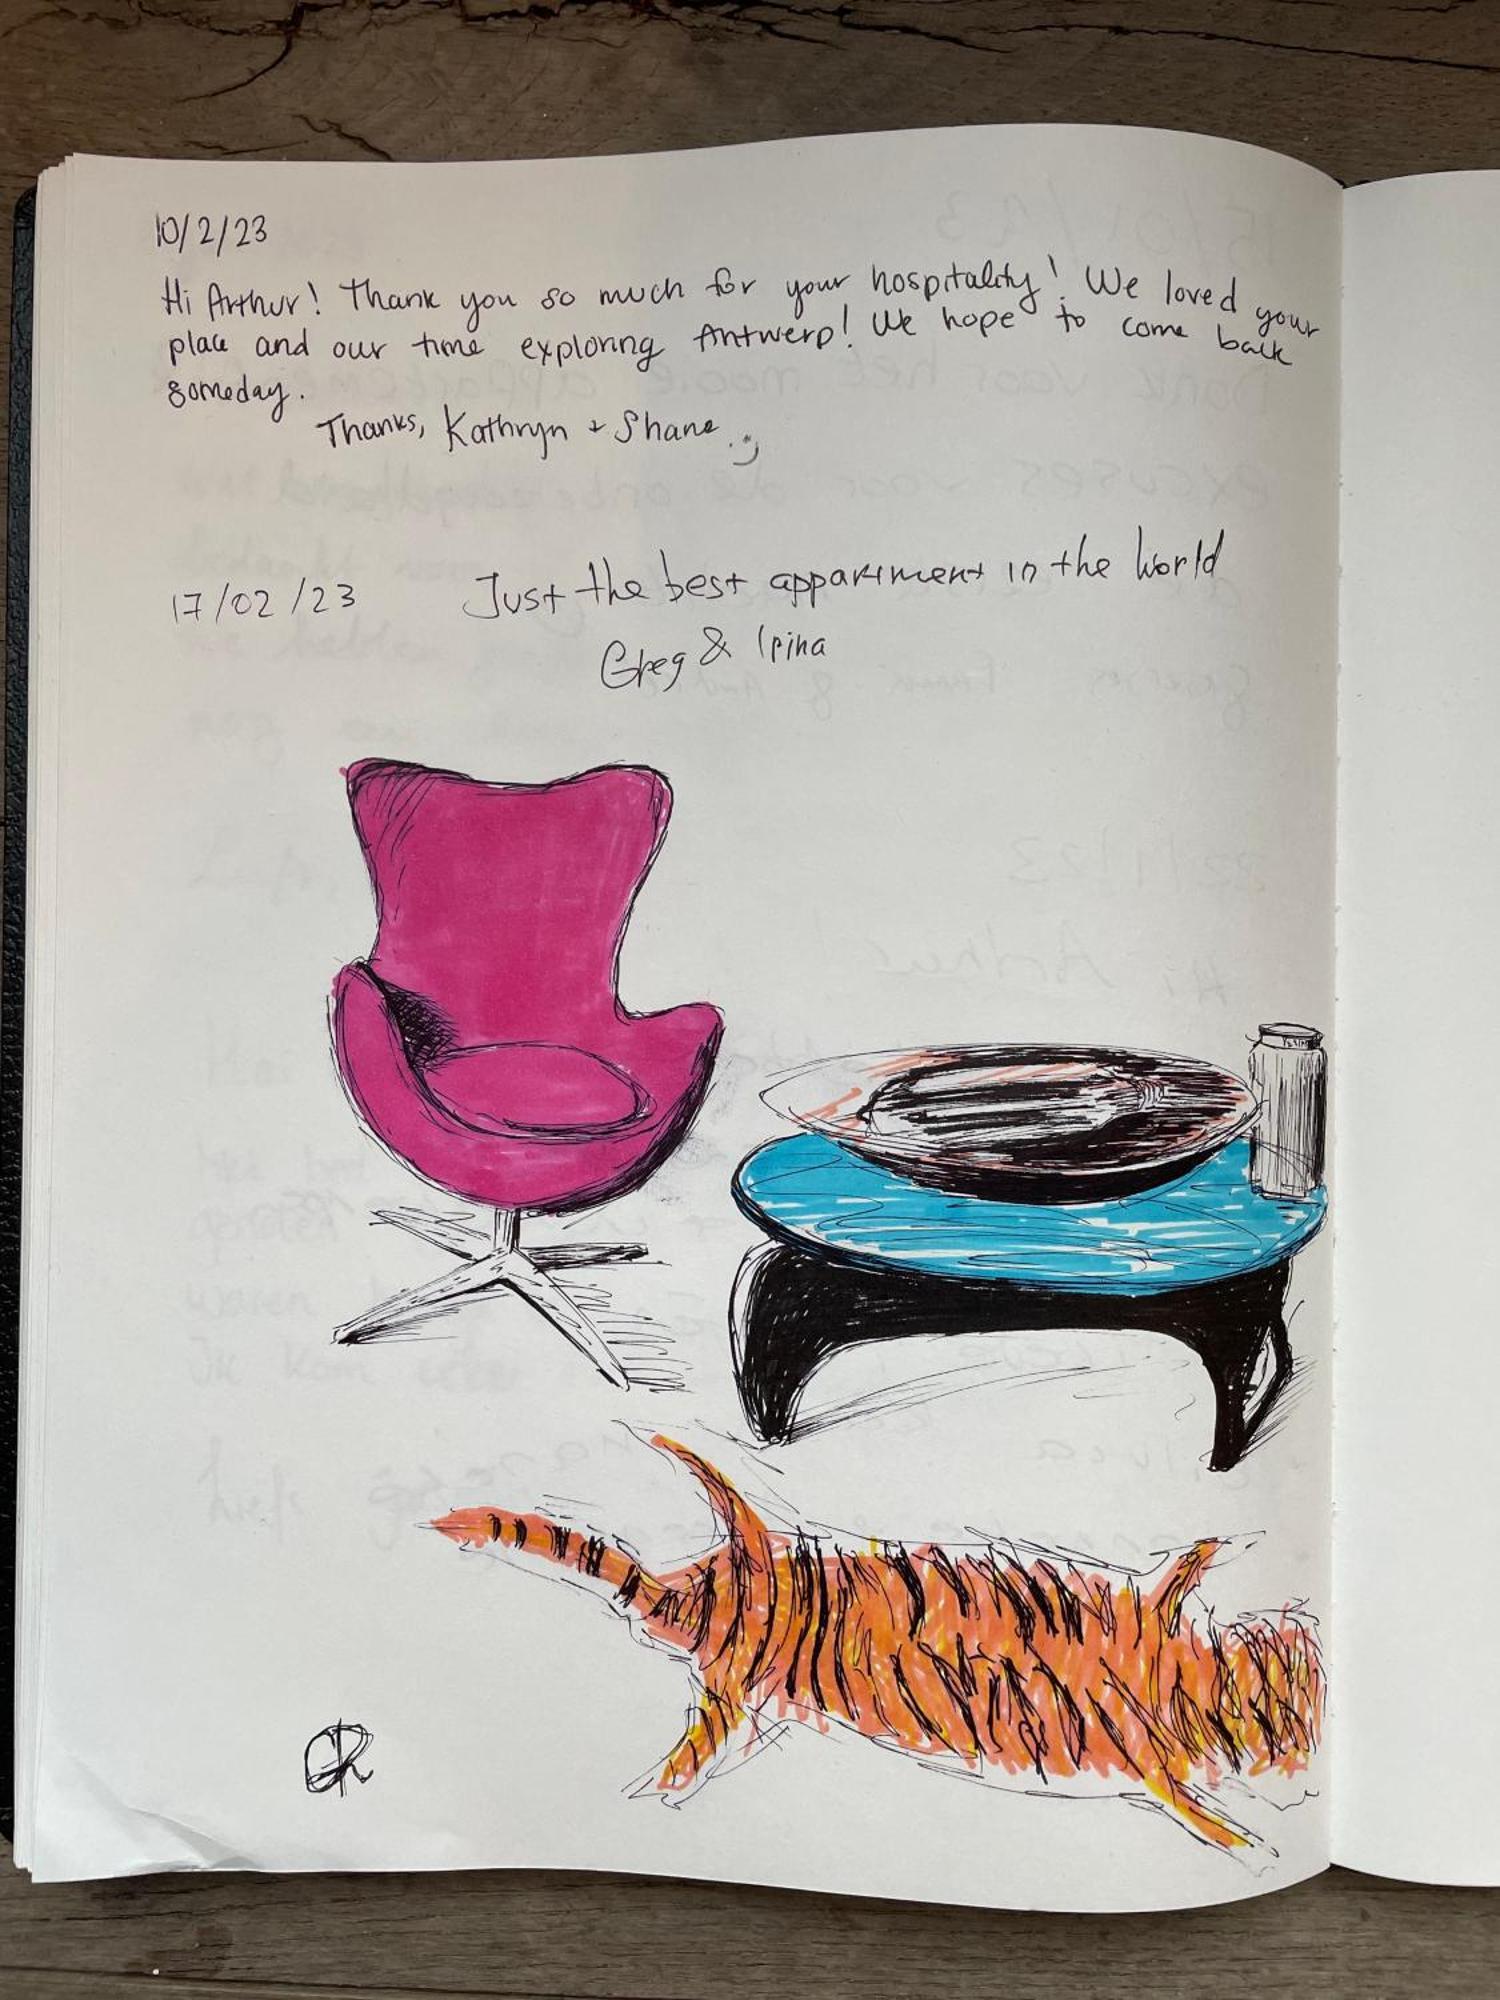 10/2/23
Hi Arthur! Thank you so much for your hospitality! We loved your
place and our time exploring Antwerp! We hope to come back
someday.
Thanks, Kathryn + Shane :)
17/02/23 Just the best appartment in the world
Greg & Irina